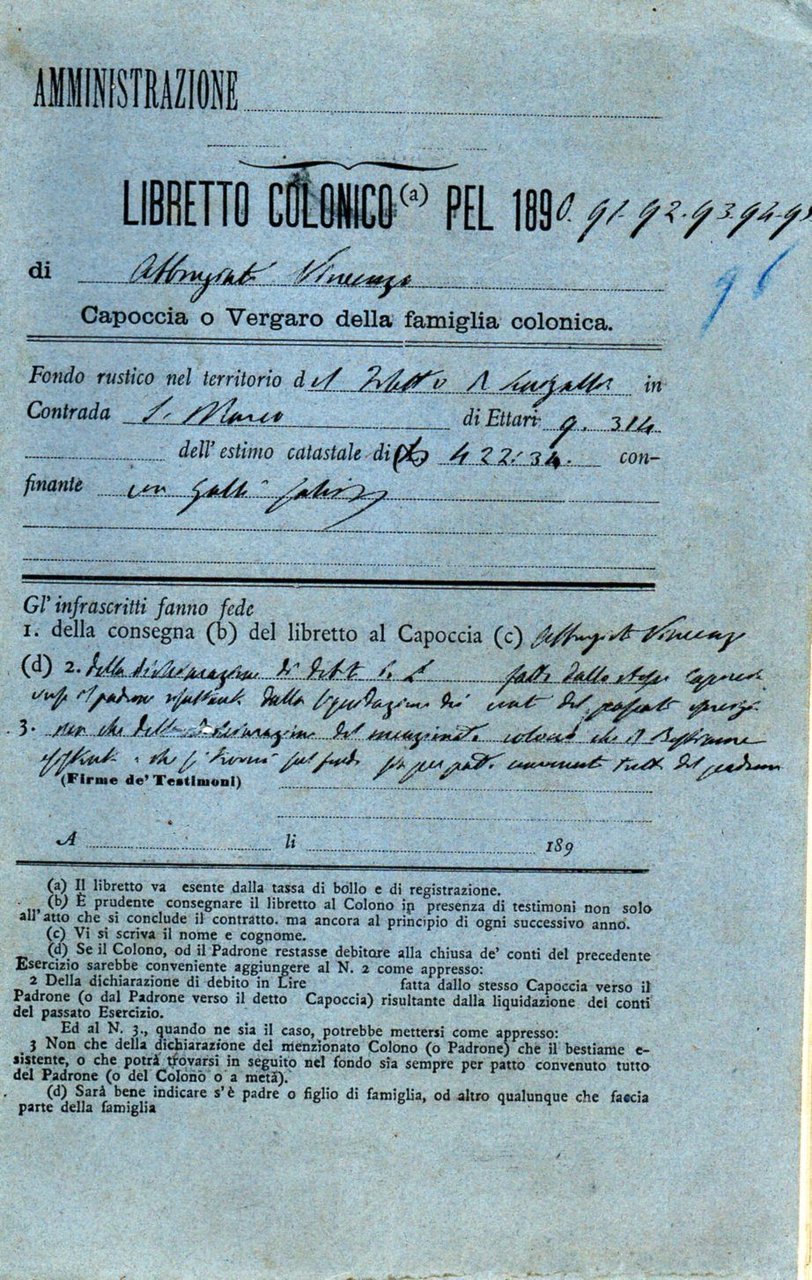 AMMINISTRAZIONE
LIBRETTO COLONICO (a) PEL 1890. 91. 92. 93. 94. 95
96
di Vincenzo
Capoccia o Vergaro della famiglia colonica.
Fondo rustico nel territorio del in
Contrada S. Marco di Ettari 9. 314
dell' estimo catastale di 422:34. con-
finante con Galli
Gl' infrascritti fanno fede
1. della consegna (b) del libretto al Capoccia (c) Vincenzo
(d) 2. della dichiarazione di debito fatta dallo stesso Capoccia
verso il padrone risultante dalla liquidazione dei conti del passato
3. non che della dichiarazione del menzionato colono che il Bestiame
esistente o che si trovi sul fondo sia per patto convenuto tutto del padrone
(Firme de' Testimoni)
A li 189
(a) Il libretto va esente dalla tassa di bollo e di registrazione.
(b) È prudente consegnare il libretto al Colono in presenza di testimoni non solo
all'atto che si conclude il contratto. ma ancora al principio di ogni successivo anno.
(c) Vi si scriva il nome e cognome.
(d) Se il Colono, od il Padrone restasse debitore alla chiusa de' conti del precedente
Esercizio sarebbe conveniente aggiungere al N. 2 come appresso:
2 Della dichiarazione di debito in Lire fatta dallo stesso Capoccia verso il
Padrone (o dal Padrone verso il detto Capoccia) risultante dalla liquidazione dei conti
del passato Esercizio.
Ed al N. 3., quando ne sia il caso, potrebbe mettersi come appresso:
3 Non che della dichiarazione del menzionato Colono (o Padrone) che il bestiame e-
sistente, o che potrà trovarsi in seguito nel fondo sia sempre per patto convenuto tutto
del Padrone (o del Colono o a metà).
(d) Sarà bene indicare s'è padre o figlio di famiglia, od altro qualunque che faccia
parte della famiglia